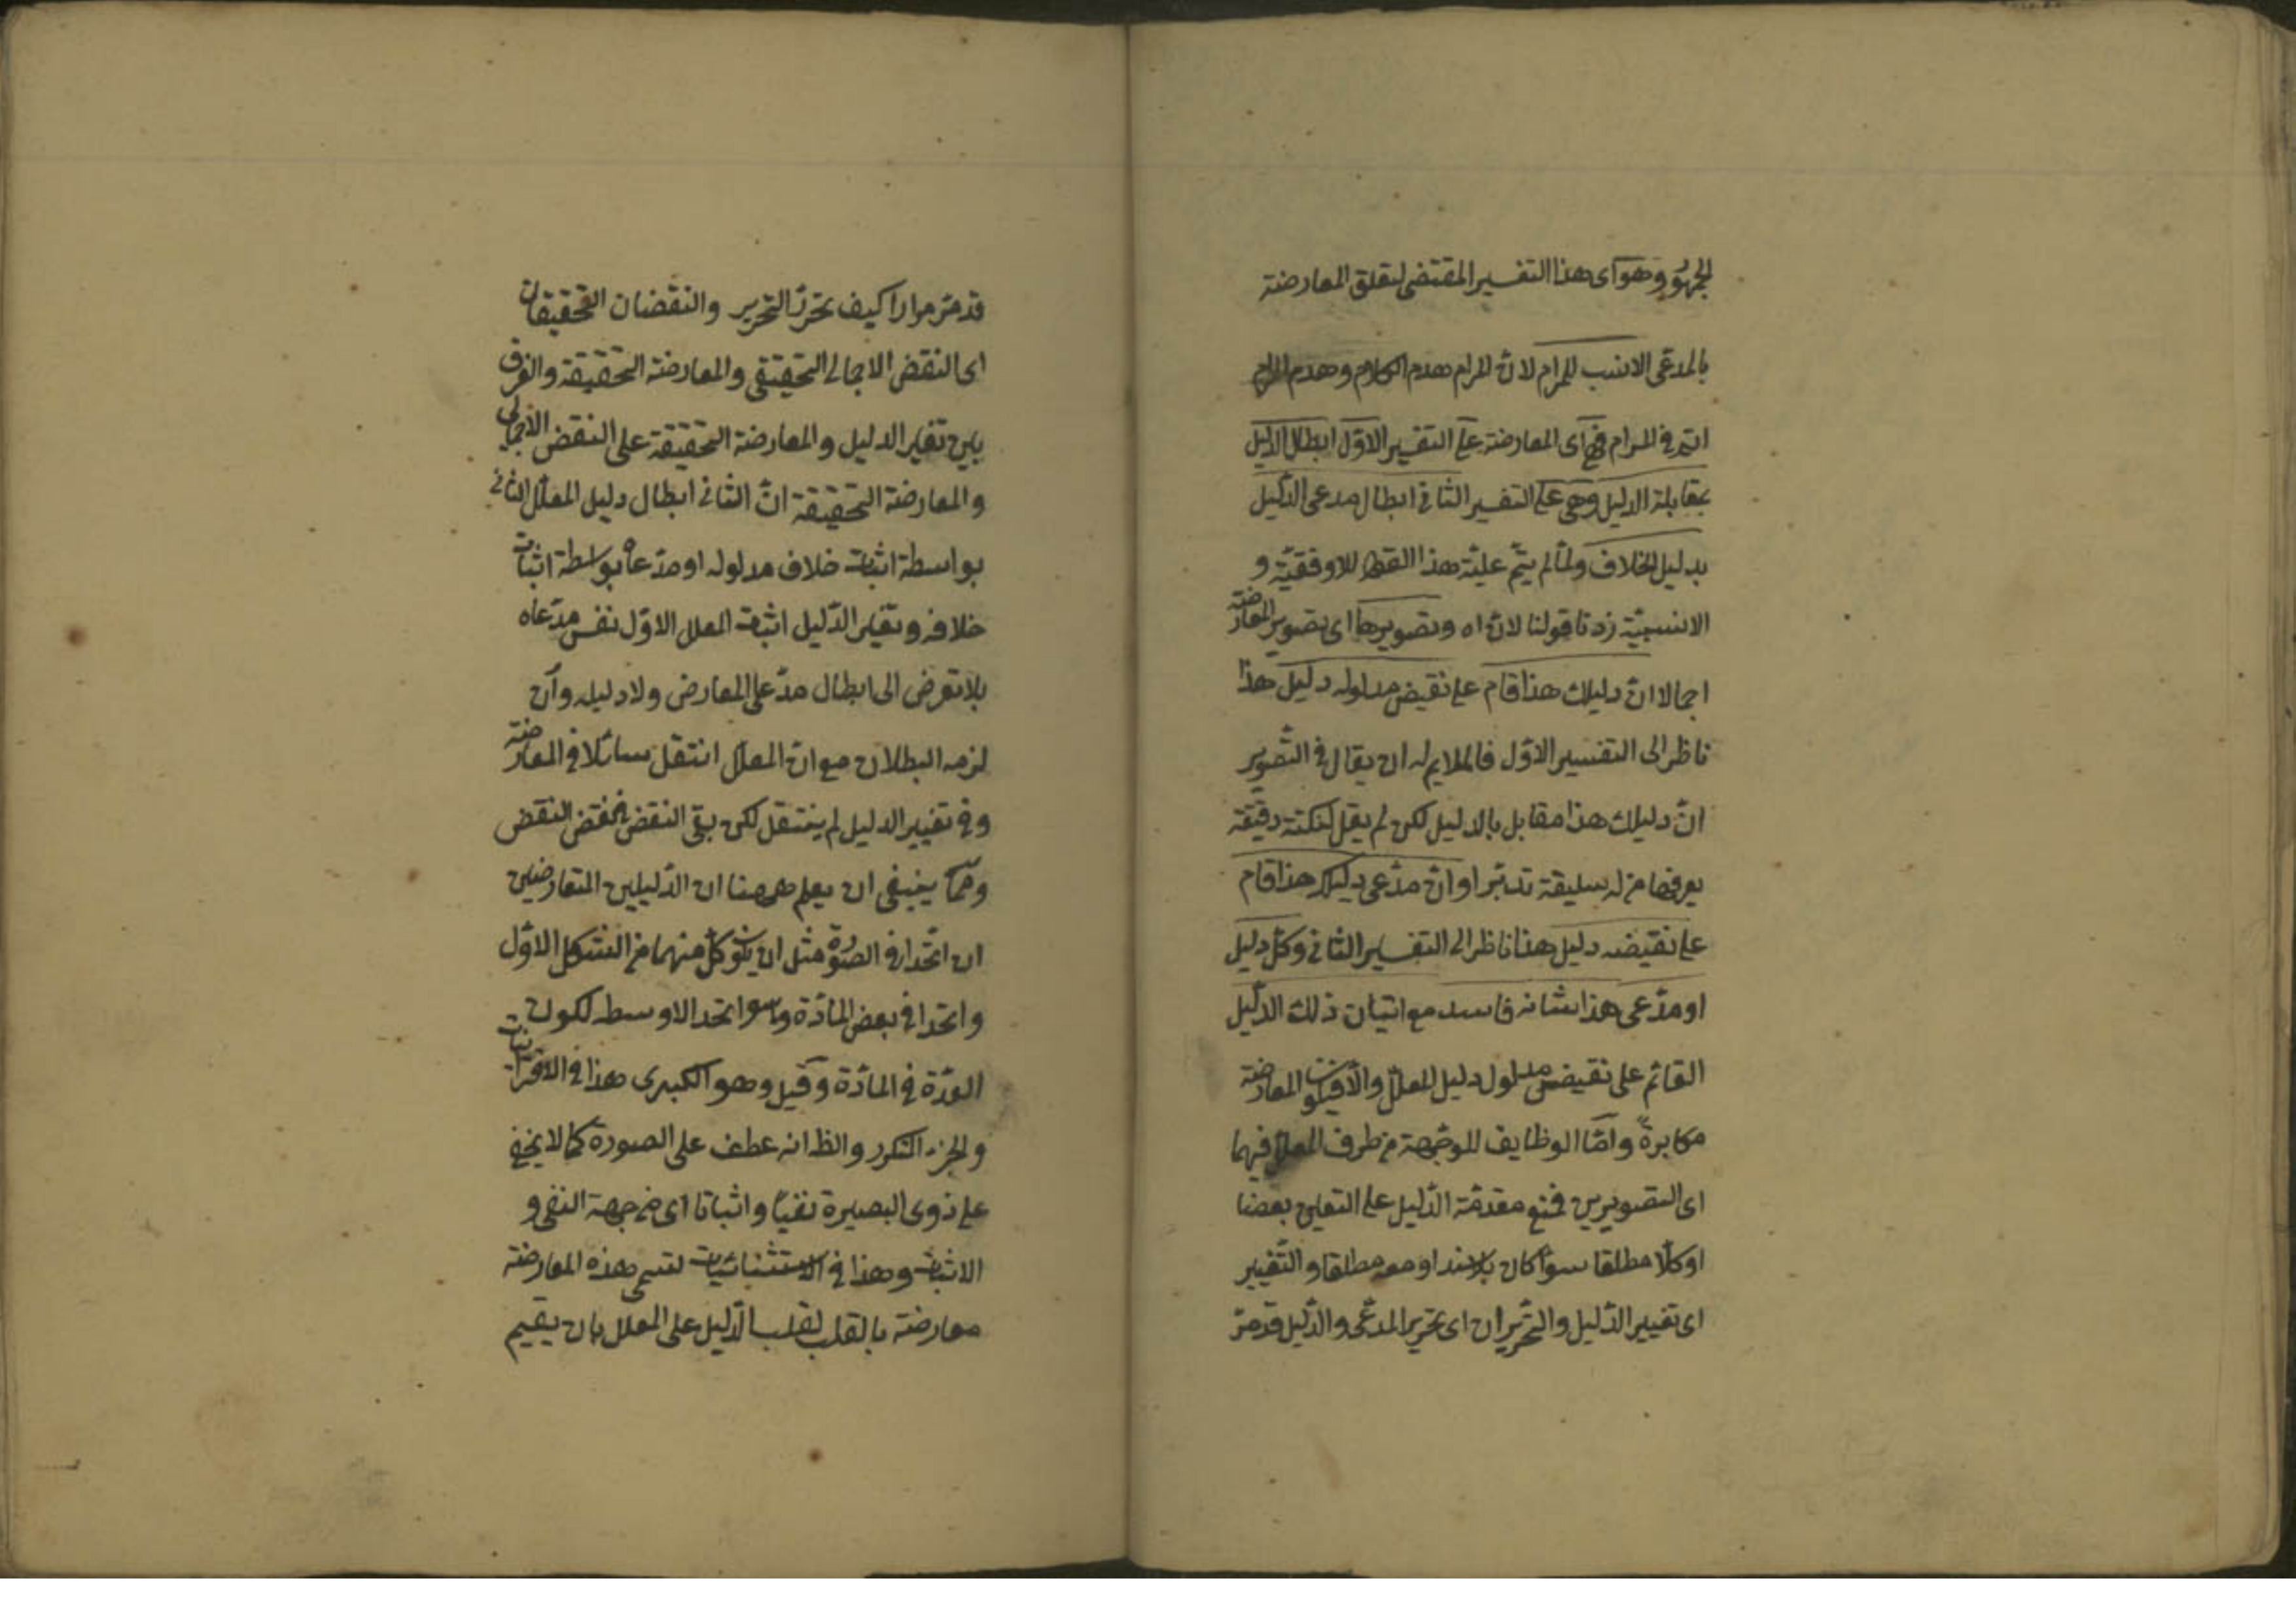 الجمهور وهو اى هذا التفسير المقتضى لتعلق المعارضة
بالمدعى الانسب للمرام لان المرام هدم الكلام وهدم المرام
اتم فى المرام فهى اى المعارضة على التفسير الاوّل ابطال الدليل
بمقابلة الدليل وهى على التفسير الثانى ابطال مدعى الدّليل
بدليل الخلاف ولمّا لم يتمّ عليّة هذا القدر للاوفقيّة و
الانسبيّة زدنا قولنا لانّ اه وتصويرها اى تصوير المعارضة
اجمالا انّ دليلك هذا قام على نقيض مدلوله دليل هذا
ناظر الى التفسير الاوّل فالملايم له ان يقال فى التّصوير
انّ دليلك هذا مقابل بالدليل لكن لم يقل لنكتة دقيقة
يعرفها من له سليقة تدبّر او انّ مدّعى دليلك هذا قام
على نقيضه دليل هذا ناظر الى التفسير الثانى وكلّ دليل
او مدّعى هذا شانه فاسد مع اتيان ذلك الدّليل
القائم على نقيض مدلول دليل المعلّل والّا فيكون المعارضة
مكابرةً وامّا الوظايف الموجّهة من طرف المعلّل فيهما
اى التصويرين فمنع مقدمّة الدّليل على التعيين بعضا
او كلّا مطلقا سواء كان بلا سند او معه مطلقا والتّغيير
اى تغيير الدّليل والتّحريران اى تحرير المدّعى والدّليل قد مرّ
قد مرّ مرارا كيف تحرّر التّحرير والنقضان التّحقيقيان
اى النقض الاجمالى التّحقيقى والمعارضة التّحقيقيّة والفرق
بين تغيير الدليل والمعارضة التّحقيقيّة على النقض الاجمالى
والمعارضة التّحقيقيّة انّ الثانى ابطال دليل المعلّل الثانى
بواسطة اثبات خلاف مدلوله او مدّعاه بواسطة اثبات
خلافه وتغيير الدّليل اثبات المعلل الاوّل نفس مدّعاه
بلا تعرض الى ابطال مدّعى المعارض ولا دليله وان
لزمه البطلان مع انّ المعلّل انتقل سائلا فى المعارضة
وفى تغيير الدليل لم ينتقل لكن بقى النقض النقض
وممّا ينبغى ان يعلم ههنا ان الدّليلين المتعارضين
ان اتّحدا فى الصّورة مثل ان يكون كلّ منهما من الشكل الاوّل
واتحدا فى بعض المادّة وهو اتحد الاوسط لكون
العدّة فى المادّة وقيل وهو الكبرى هذا فى الاقترانيات
والجزء المتكرر والظ انه عطف على الصورة كما لا يخفى
على ذوى البصيرة نفيًا واثباتا اى من جهة النفى و
الاثبات وهذا فى الاستثنائيات تسمى هذه المعارضة
معارضة بالقلب لقلب الدّليل على المعلل بان يقيم